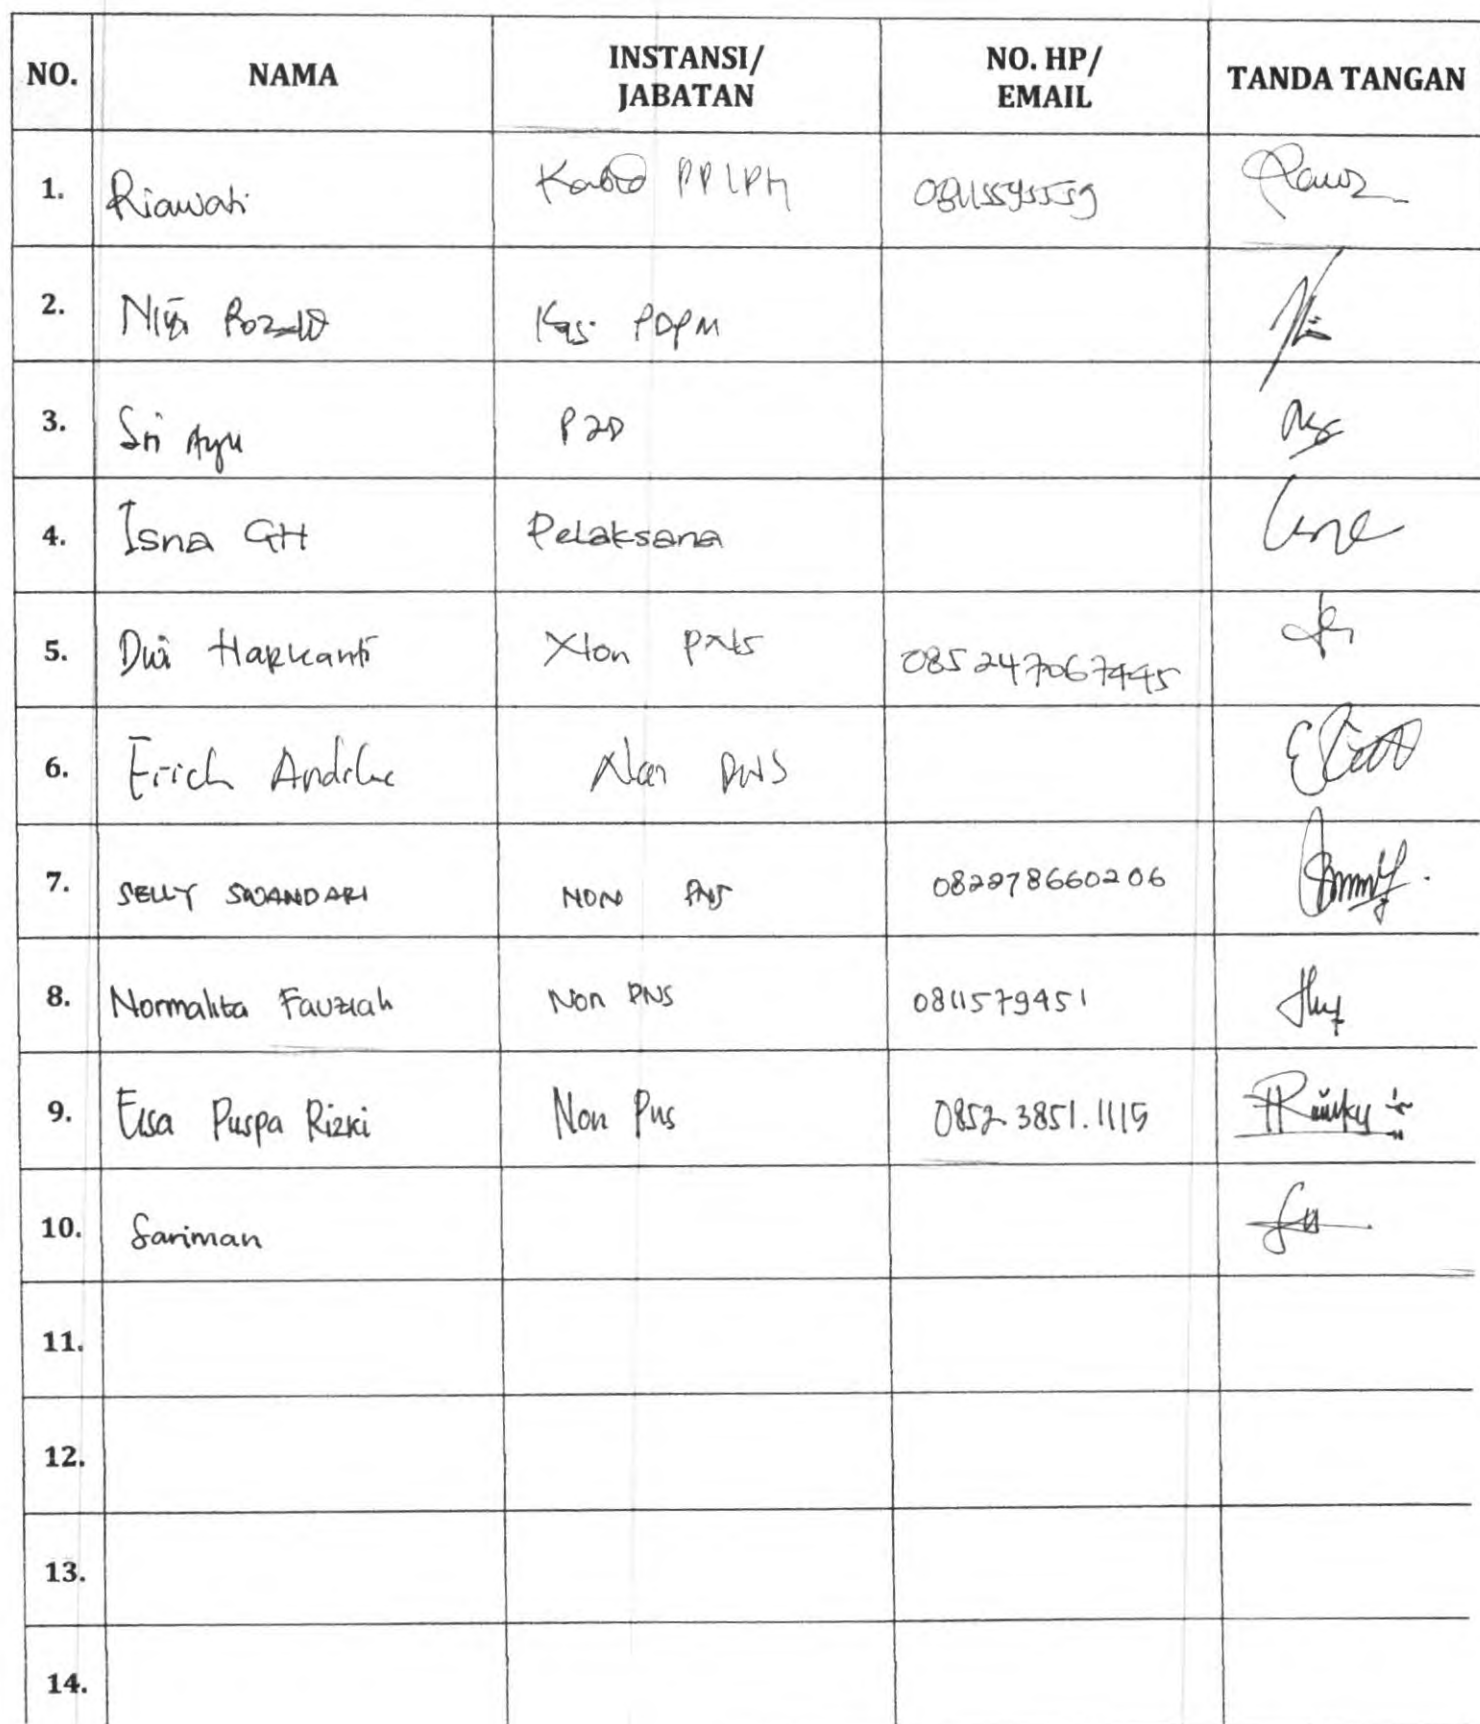 NO. NAMA INSTANSI/ JABATAN NO. HP/ EMAIL TANDA TANGAN
1. Riawati Kabid
2. Kasi PDPM
3. Sri Ayu P2D
4. Isna GH Pelaksana
5. Dwi Non PNS 085247067445
6. Erich Non PNS
7. SELLY SWANDARI NON PNS 082278660206
8. Normalita Fauziah Non PNS 0811579451
9. Elsa Puspa Rizki Non Pns 0852.3851.1115
10. Sariman
11.
12.
13.
14.